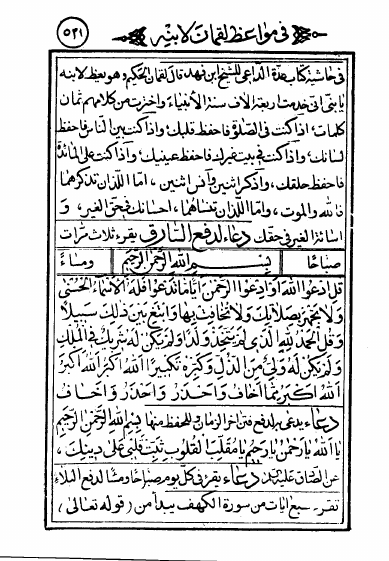 في مواعظ لقمان لابنه
٥٢١
في حاشية كتاب عدة الداعي للشيخ ابن فهد قال لقمان الحكيم وهو يعظ لابنه
يا بني اني خدمت اربعة آلاف سنة الأنبياء واخترت من كلامهم ثمان
كلمات، اذا كنت في الصلوة فاحفظ قلبك واذا كنت بين الناس فاحفظ
لسانك، واذا كنت في بيت غيرك فاحفظ عينيك، واذا كنت على المائدة
فاحفظ حلقك، واذكر اثنين وأنس اثنين، امّا اللذان تذكرهما
فالله والموت، وامّا اللذان تنساهما، احسانك في حق الغير، و
اسائة الغير في حقك دعاء لدفع السارق يقرء ثلاث مرّات
صباحًا بِسْمِ اللهِ الرَّحْمٰنِ الرَّحِيمِ ومساءً
قُلِ ادْعُوا اللهَ أَوِ ادْعُوا الرَّحْمٰنَ أَيًّا مَا تَدْعُوا فَلَهُ الْأَسْمَاءُ الْحُسْنٰى
وَلَا تَجْهَرْ بِصَلَاتِكَ وَلَا تُخَافِتْ بِهَا وَابْتَغِ بَيْنَ ذٰلِكَ سَبِيلًا
وَقُلِ الْحَمْدُ لِلّٰهِ الَّذِي لَمْ يَتَّخِذْ وَلَدًا وَلَمْ يَكُنْ لَهُ شَرِيكٌ فِي الْمُلْكِ
وَلَمْ يَكُنْ لَهُ وَلِيٌّ مِنَ الذُّلِّ وَكَبِّرْهُ تَكْبِيرًا اَللهُ اَكْبَرُ اَللهُ اَكْبَرُ
اَللهُ اَكْبَرُ مِمَّا اَخَافُ وَاَحْذَرُ وَاَحْذَرُ وَاَخَافُ
دعاء يدعى به لدفع فتن اخر الزمان وللحفظ منها بِسْمِ اللهِ الرَّحْمٰنِ الرَّحِيمِ
يَا اَللهُ يَا رَحْمٰنُ يَا رَحِيمُ يَا مُقَلِّبَ الْقُلُوبِ ثَبِّتْ قَلْبِي عَلٰى دِينِكَ،
عن الصادق عليه السلام دعاء يقرء في كل يوم صباحا ومساء لدفع البلاء
تقرء سبع ايات من سورة الكهف يبدأ من (قوله تعالى)